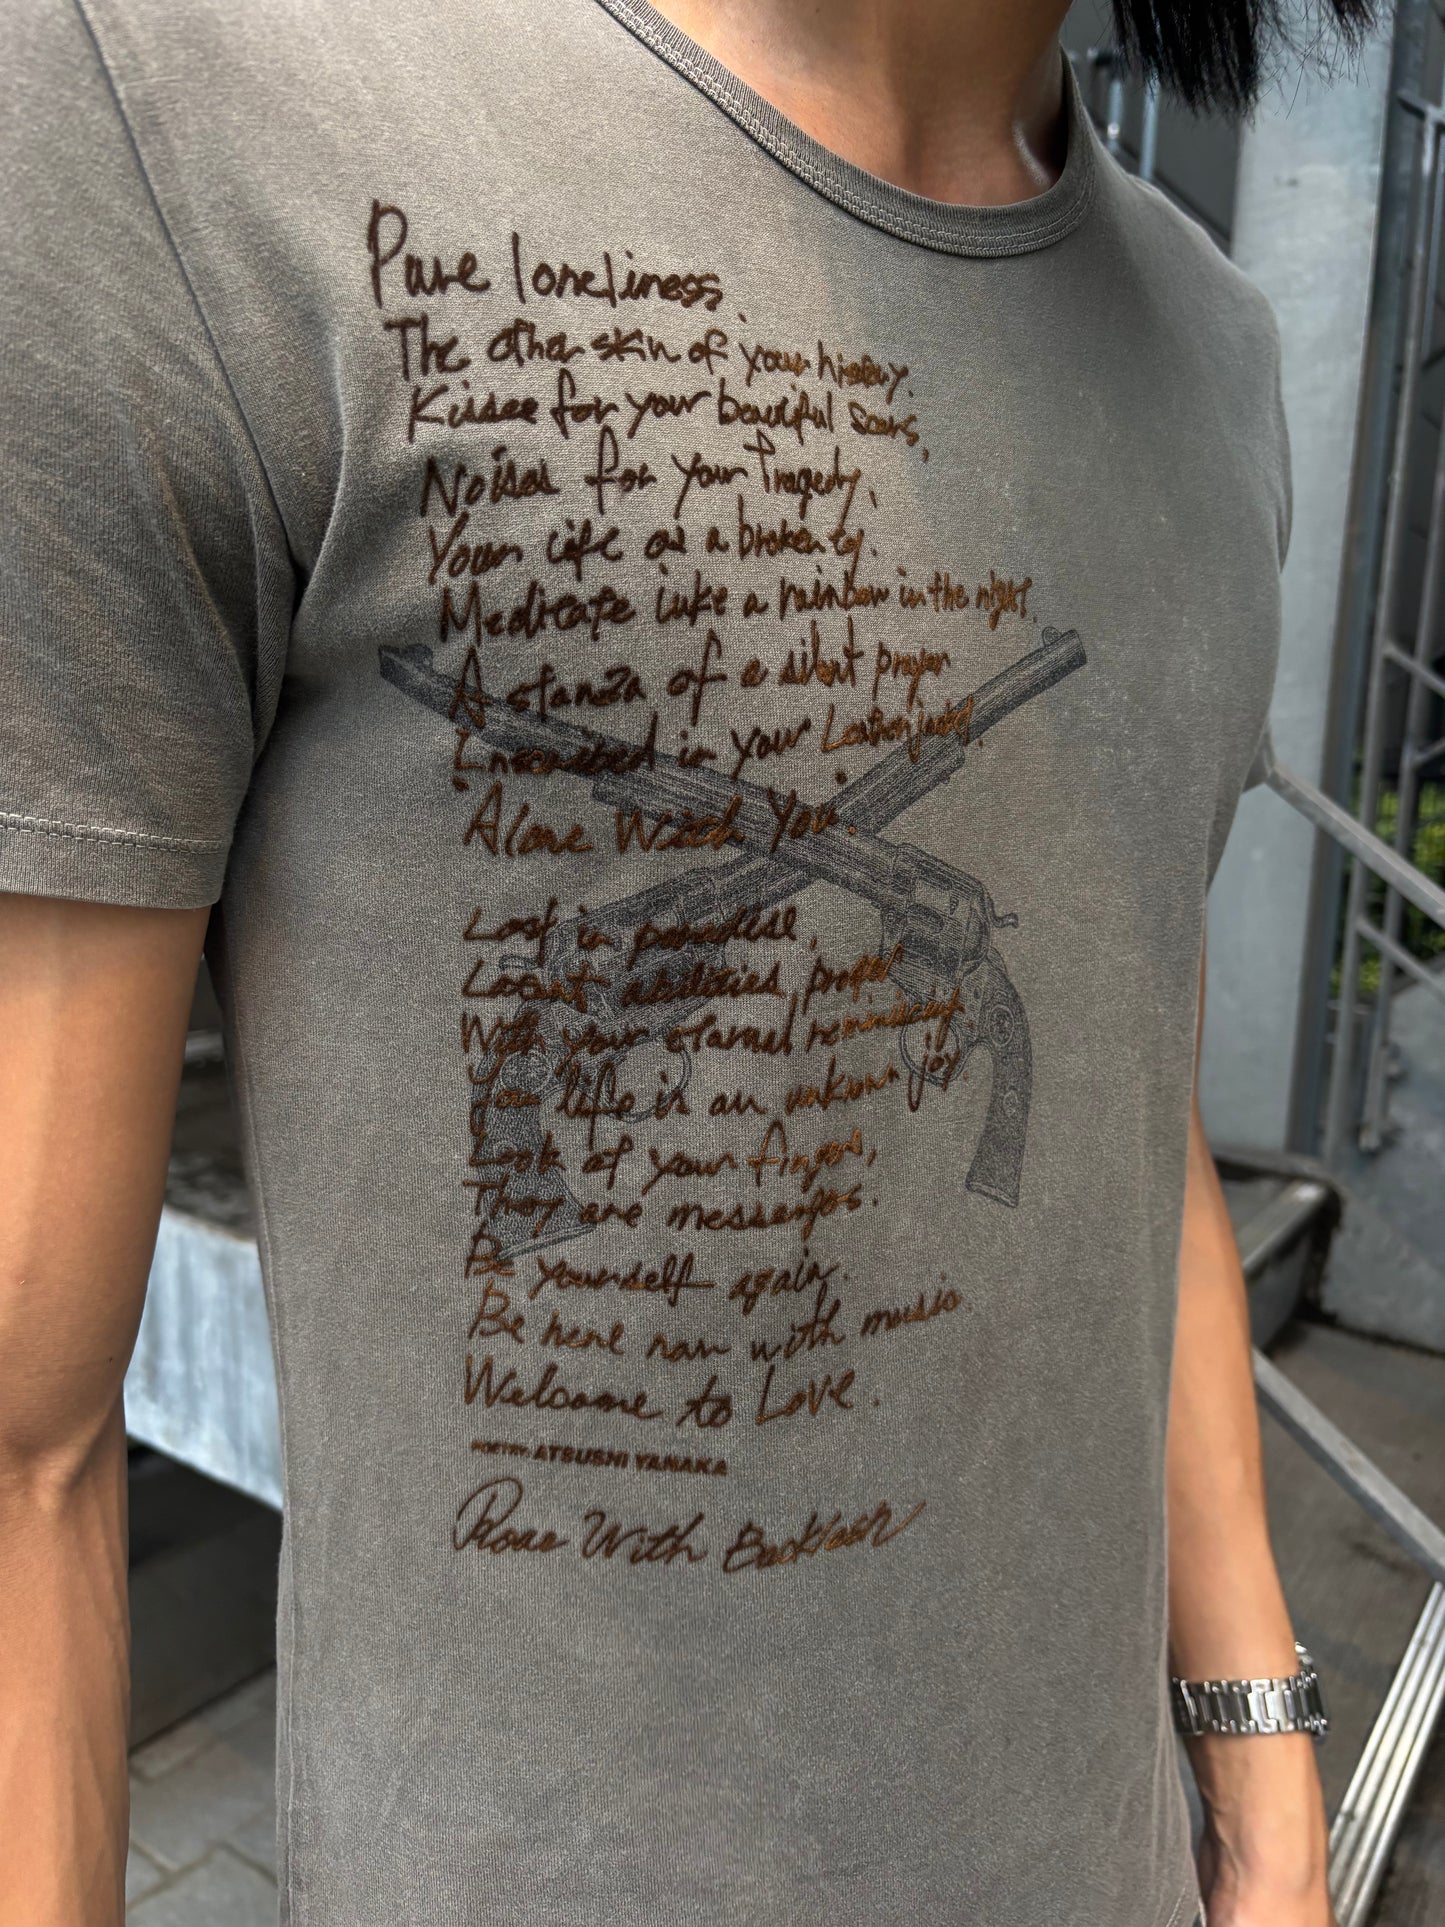 Pure loneliness,
The other skin of your history.
Kisses for your beautiful scars,
Noises for your Tragedy,
Your life as a broken toy.
Meditate like a rainbow in the night.
A stanza of a silent prayer
Inscribed in your Leather jacket.
"Alone With You".
Lost in paradise,
Locust abilities, proper
With your eternal reminiscent.
You life is an unknown joy.
Look at your fingers,
They are messengers.
Be yourself again.
Be here now with music.
Welcome to Love.
POETRY: ATSUSHI YANAKA
Rose With Backlash